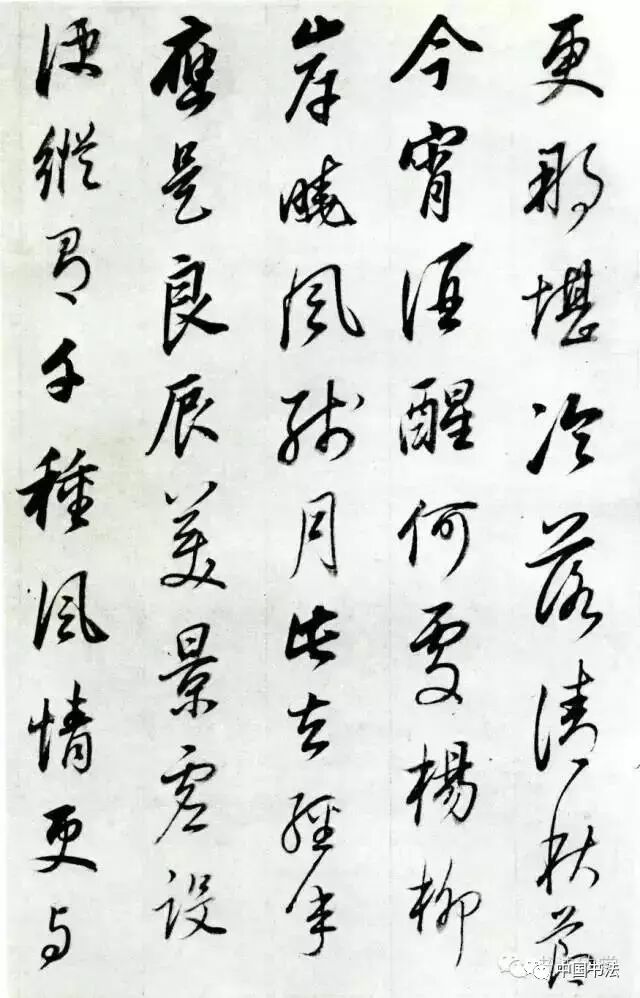 更那堪冷落清秋节
今宵酒醒何處楊柳
岸曉風残月此去經年
應是良辰美景虚设
便縱有千種風情更与
中国书法